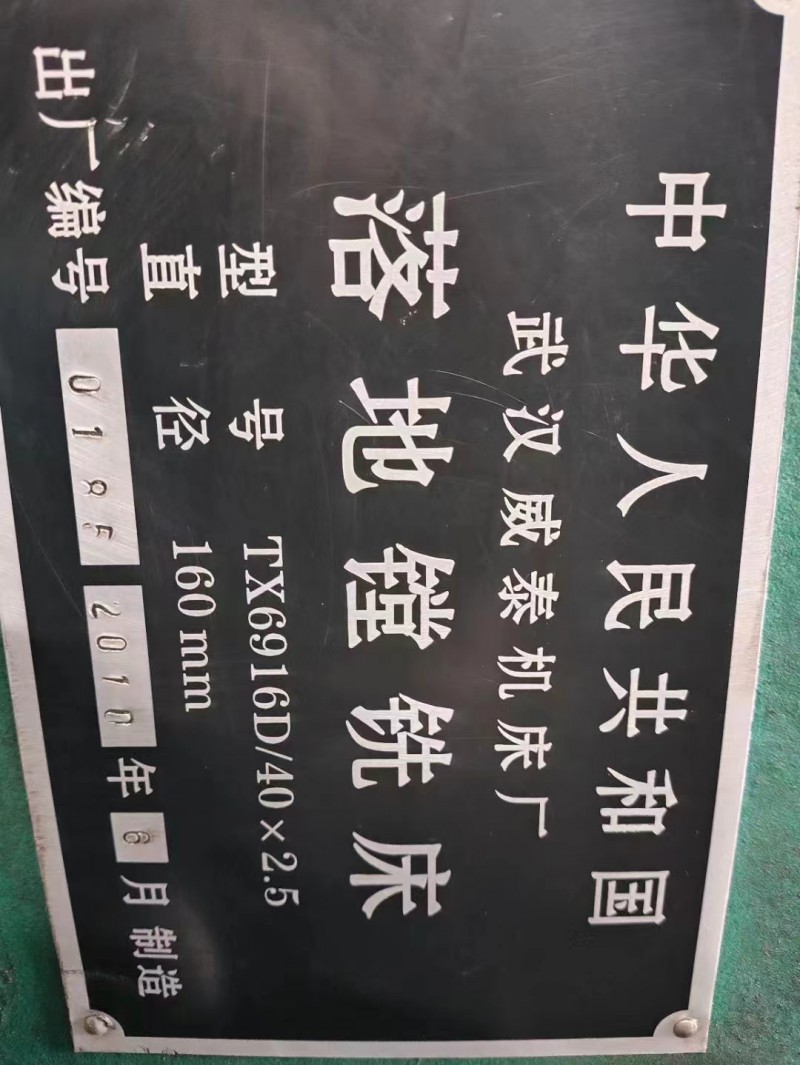 中华人民共和国
武汉威泰机床厂
落地镗铣床
型号 TX6916D/40×2.5
直径 160mm
出厂编号 0185 2010年6月制造